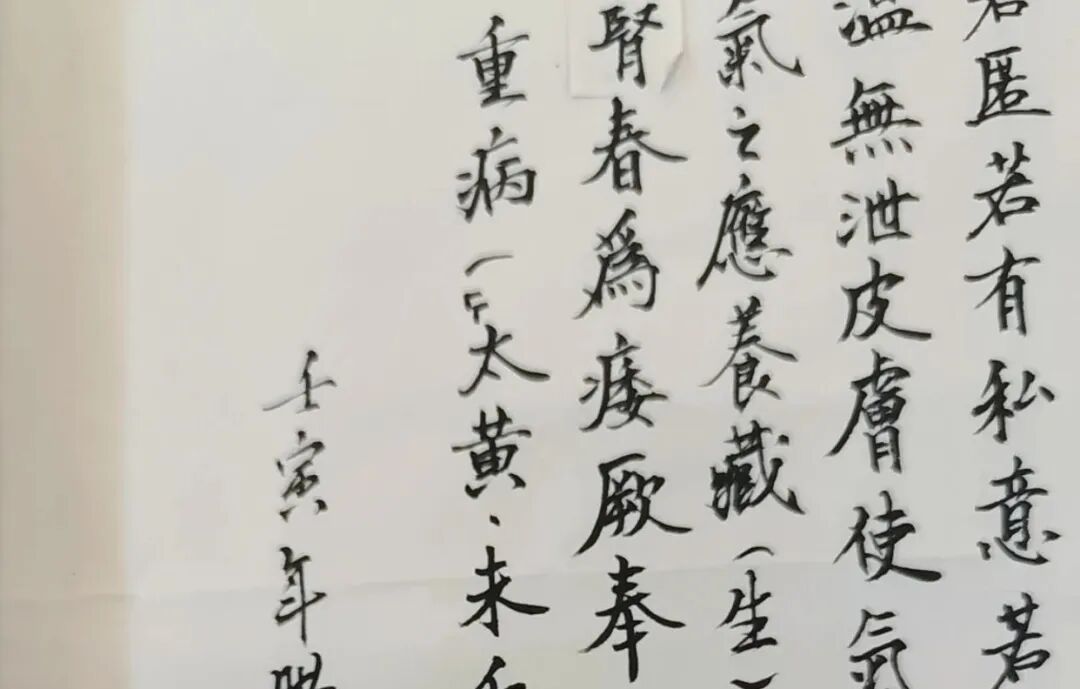 匿若有私意若
溫無泄皮膚使氣
氣之應養藏(生)
腎春為痿厥奉
重病(太黃、未
壬寅年